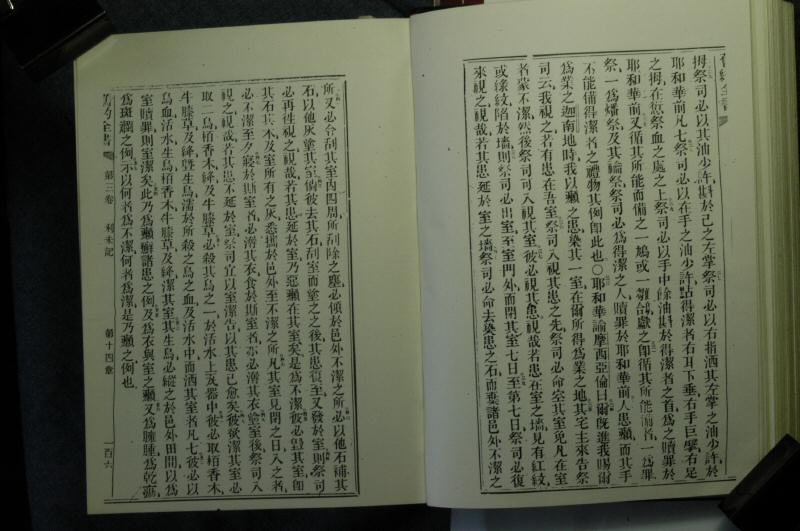 舊約全書
拇祭司必以其油少許斟於己之左掌祭司必以右指酒其左掌之油少許於
耶和華前凡七祭司必以在手之油少許沾得潔者右耳下垂右手巨擘右足
之拇在愆祭血之處之上祭司必以手中餘油斟於得潔者之首爲之贖罪於
耶和華前又循其所能而備之一鳩或一雛鴿獻之卽循其所能備者一爲罪
祭一爲燔祭及其禴祭祭司必爲得潔之人贖罪於耶和華前人患癩而其手
不能備得潔者之禮物其例卽此也〇耶和華諭摩西亞倫曰爾旣進我賜爾
爲業之迦南地時我以癩之患染其一室在爾所得爲業之地其宅主來告祭
司云我視之若有患在吾室祭司入視其患之先祭司必命空其室免凡在室
者蒙不潔然後祭司可入視其室彼必視其患視哉若患在室之墻見有紅紋
或綠紋陷於墻則祭司必出室至室門外而閉其室七日至第七日祭司必復
來視之視哉若其患延於室之墻祭司必命去染患之石而棄諸邑外不潔之
所又必令刮其室內四周所刮除之塵必傾於邑外不潔之所必以他石補其
石以他灰塗其室倘彼去其石刮室而塗之之後其患復至又發於室則祭司
必再徃視之視哉若其患延於室乃惡癩在其室矣是爲不潔彼必毀其室卽
其石其木及室所有之灰悉攜於邑外至不潔之所凡其室見閉之日入之者
必不潔至夕寢於斯室者必滌其衣食於斯室者亦必滌其衣塗室後祭司入
視之視哉若其患不延於室祭司宜以室潔告以其患已愈矣彼欲潔其室必
取二鳥栢香木絳及牛膝草必殺其鳥之一於活水上瓦器中彼必取栢香木
牛膝草及絳曁生鳥濡於所殺之鳥之血及活水中而洒其室者凡七彼必以
鳥血活水生鳥栢香木牛膝草及絳潔其室其生鳥必縱之於邑外田間以爲
室贖罪則室潔矣此乃爲癩癬諸患之例及爲衣與室之癩又爲腫爲乾癬
爲斑斕之例示以何者爲不潔何者爲潔是乃癩之例也
舊約全書 第三卷 利未記 第十四章 一百六